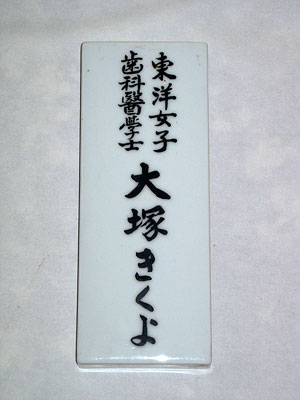 東洋女子
歯科醫學士
大塚きくよ